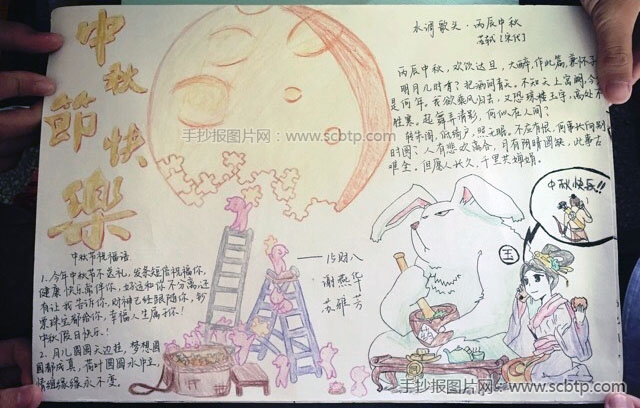 中秋節快樂
水调歌头·丙辰中秋
苏轼[宋代]
丙辰中秋，欢饮达旦，大醉，作此篇，兼怀子
明月几时有？把酒问青天。不知天上宫阙，今
是何年。我欲乘风归去，又恐琼楼玉宇，高处不
胜寒。起舞弄清影，何似在人间？
转朱阁，低绮户，照无眠。不应有恨，何事长向别
时圆？人有悲欢离合，月有阴晴圆缺，此事古
难全。但愿人长久，千里共婵娟。
手抄报图片网：www.scbtp.com
中秋快乐!!
玉
15财八
谢燕华
苏雅芳
中秋节祝福语
1.今年中秋节不送礼，发条短信祝福你，
健康快乐常伴你，好运和你不分离，还
有让我告诉你，财神已经跟随你，钞
票珠宝都给你，幸福人生属于你！
中秋假日快乐！
2.月儿圆圆天边挂，梦想圆
圆都成真，荷叶圆圆水中立，
情组缘缘永不变。
手抄报图片网：www.scbtp.com